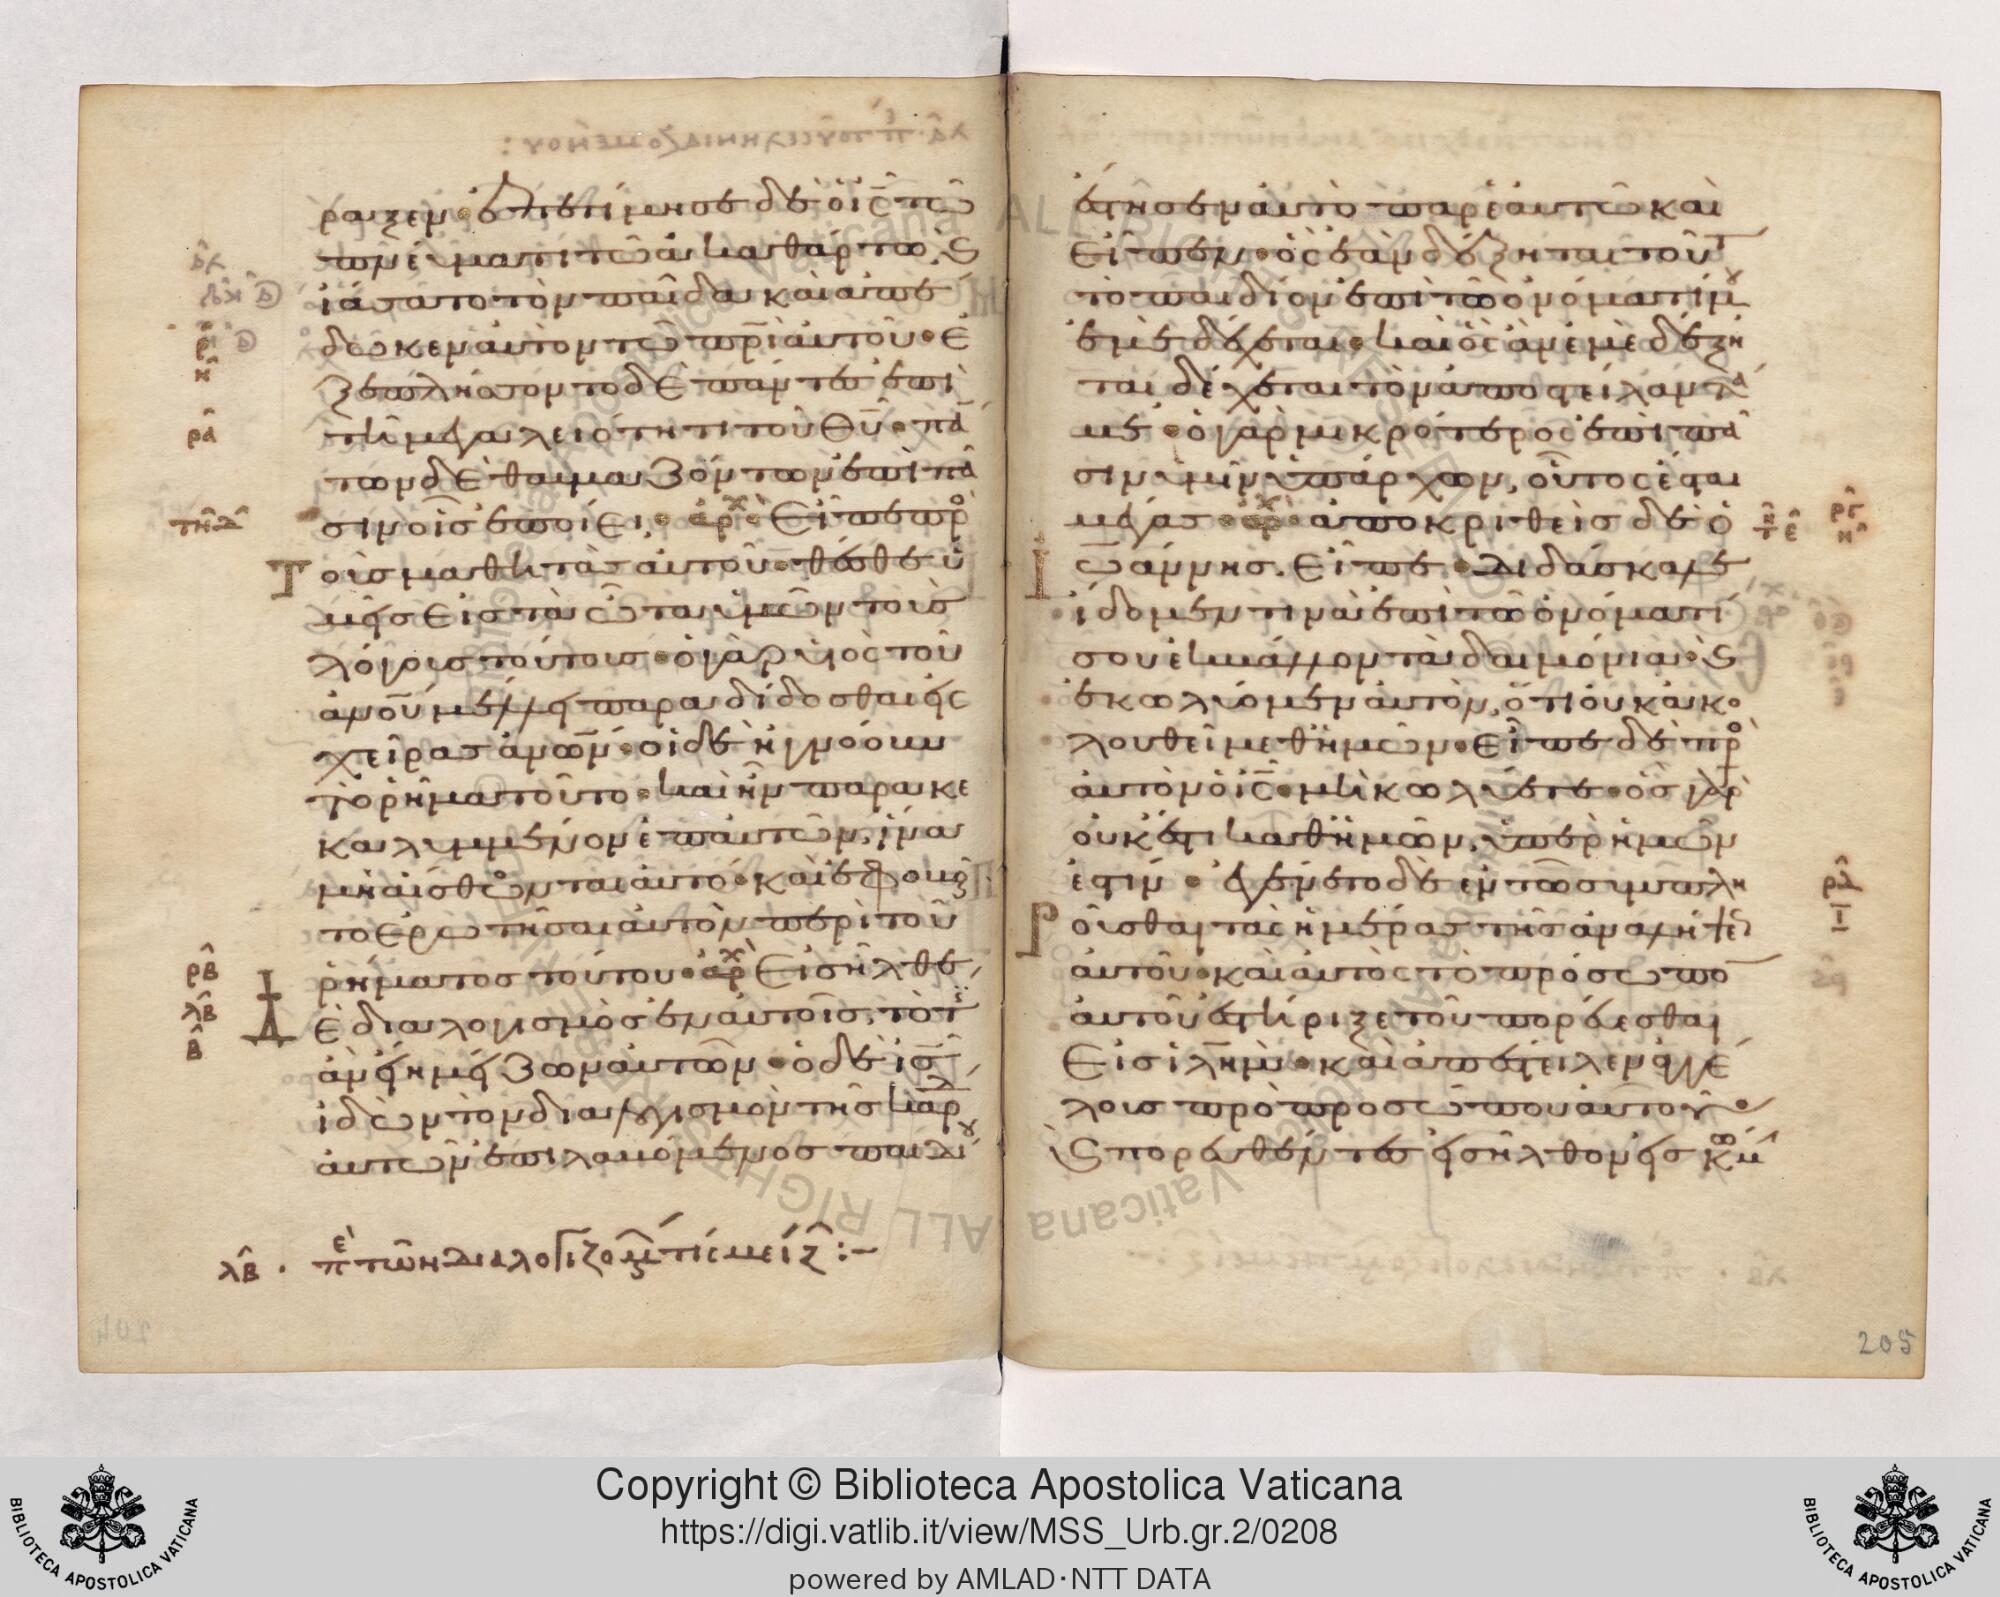 ραξεν· ἐπετίμησε δὲ ὁ ις τῶ
πνεύματι τῶ ἀκαθάρτω, ϗ
ἰάσατο τὸν παῖδα καὶ ἀπέ
δωκεν αὐτὸν τῶ πρὶ αὐτοῦ· ἐ
ξεπλήσσοντο δὲ πάντες ἐπὶ
τῆ μεγαλειότητι τοῦ θυ· πά
των δὲ θαυμαζόντων ἐπὶ πᾶ
σιν οἷς ἐποίει, αρχ εἶπε πρ
τοὺς μαθητὰς αὐτοῦ· θέσθε ὑ
μεῖς εἰς τὰ ὦτα ὑμῶν τοὺς
λόγους τούτους· ὁ γὰρ υἱὸς τοῦ
ανου μέλλει παραδίδοσθαι εἰς
χεῖρας ανων· οἱ δὲ ἠγνόουν
τὸ ρῆμα τοῦτο· καὶ ἦν παρακε
καλυμμένον ἀπ' αὐτῶν, ἵνα
μὴ αἴσθωνται αὐτό· καὶ ἐφοβοῦ
το ἐρωτῆσαι αὐτὸν περὶ τοῦ
ρήματος τούτου· αρχ Εἰσῆλθε
δὲ διαλογισμὸς ἐν αὐτοῖς, τὸ τί
ἂν εἴη μείζων αὐτῶν· ὁ δὲ ις
ἰδὼν τὸν διαλογισμὸν τῆς καρδ
αὐτῶν ἐπιλαβόμενος παιδίου
λβ · πε τῶν διαλογιζομ τίς μείζ :–
ἔστησεν αὐτὸ παρ' ἑαυτῶ καὶ
εἶπεν· ὃς ἐὰν δέξηται τοῦτ
τὸ παιδίον ἐπὶ τῶ ὀνόματί μου
ἐμὲ δέχεται· καὶ ὃς ἂν ἐμὲ δέξη
ται δέχεται τὸν ἀποστείλαντά
με· ὁ γὰρ μικρότερος ἐπὶ πᾶ
σιν ὑμῖν ὑπάρχων, οὗτος ἔσται
μέγας· αρχ· ἀποκριθεὶς δὲ ὁ
ἰωάννης. εἶπε· Διδάσκαλε
ἴδομέν τινα ἐπὶ τῶ ὀνόματί
σου ἐκβάλλοντα δαιμόνια· ϗ
ἐκωλύομεν αὐτὸν, ὅτι οὐκ ἀκο
λουθεῖ μεθ' ἡμῶν· εἶπε δὲ πρ
αὐτὸν ὁ ις· μὴ κωλύετε· ὃς γὰρ
οὐκ ἔστι καθ' ἡμῶν, ὑπὲρ ἡμῶν
ἐστιν· ἐγένετο δὲ ἐν τῶ συμπλη
ροῦσθαι τὰς ἡμέρας τῆς ἀναλήψε
αὐτοῦ· καὶ αὐτὸς τὸ πρόσωπο
αὐτοῦ ἐστήριξε τοῦ πορεύεσθαι
εἰς ιλημ· καὶ ἀπέστειλεν ἀγγέ
λους πρὸ προσώπου αὐτοῦ·
ϗ πορευθέντες εἰσῆλθον εἰς κώμ
205
Copyright © Biblioteca Apostolica Vaticana
https://digi.vatlib.it/view/MSS_Urb.gr.2/0208
powered by AMLAD·NTT DATA
BIBLIOTECA APOSTOLICA VATICANA
BIBLIOTECA APOSTOLICA VATICANA